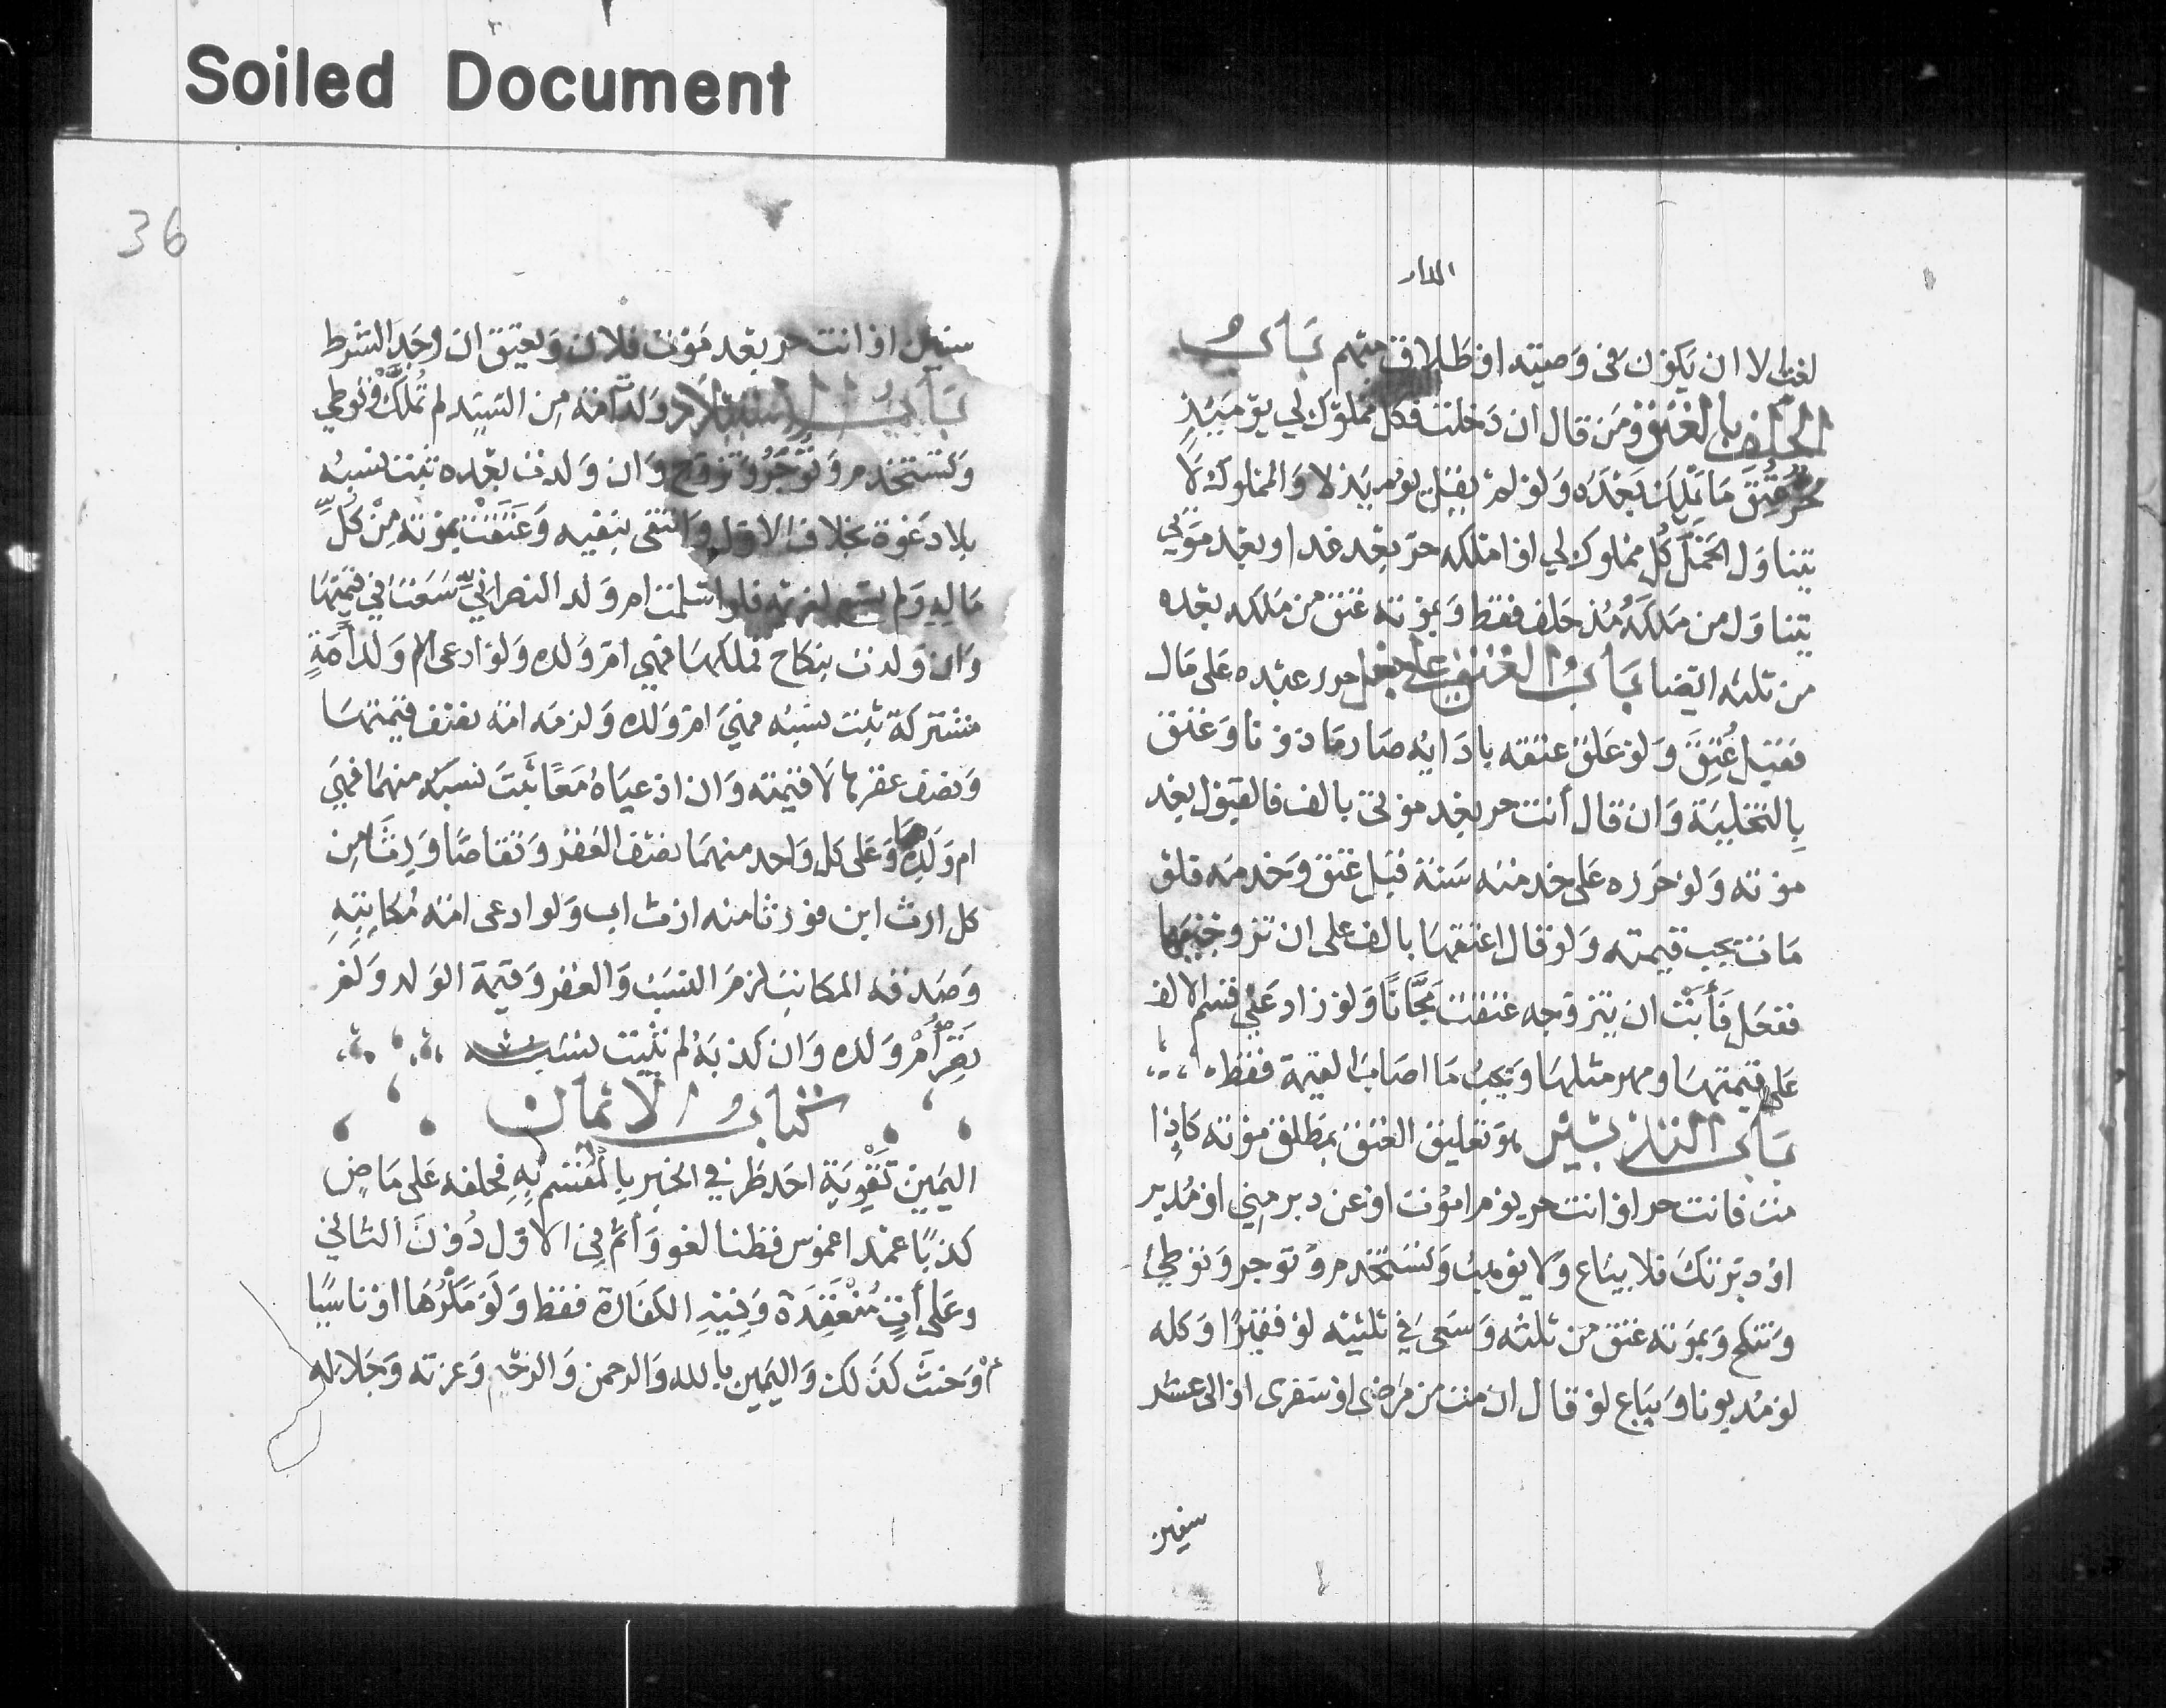 Soiled Document
36
الدار
لغت الا ان يكون فى وصيته او طلاق مبهم باب
الحلف بالعتق ومن قال ان دخلت فكل مملوك لي يومئذ
حر عتق ما يملك بعده ولو لم يقل يومئذ لا والمملوك لا
يتناول الحمل كل مملوك لي او املكه حر بعد غد او بعد موتي
يتناول من ملكه مذ حلف فقط وبموته عتق من ملكه بعده
من ثلثه ايضا باب العتق على جعل حرر عبده على مال
فقبل عتق ولو علق عتقه بادايه صار ماذونا وعتق
بالتخلية وان قال أنت حر بعد موتى بالف فالقبول بعد
موته ولو حرره على خدمته سنة فقبل عتق وخدمه فلو
مات تجب قيمته ولو قال اعتقها بالف على ان تزوجنيها
ففعل فأبت ان يتزوجه عتقت مجانا ولو زاد عني قسم الالف
على قيمتها ومهر مثلها ويجب ما اصاب القيمة فقط
باب التدبير هو تعليق العتق بمطلق موته كاذا
مت فانت حر او انت حر يوم اموت او عن دبر مني او مدبر
او دبرتك فلا يباع ولا يوهب ويستخدم ويوجر وتوطي
وتنكح وبموته عتق من ثلثه وسعى في ثلثيه لو فقيرا وكله
لو مديونا ويباع لو قال ان مت من مرضى او سفرى او الى عشر
سنين
سنين او انت حر بعد موت فلان ويعتق ان وجد الشرط
باب الاستيلاد ولدت امة من السيد لم تملك وتوطي
وتستخدم وتوجر وتزوج وان ولدت بعده ثبت نسبه
بلا دعوة بخلاف الاول وانتفى بنفيه وعتقت بموته من كل
ماله ولم تسع لغريمه فلو اسلمت ام ولد النصراني سعت في قيمتها
وان ولدت بنكاح فملكها فهي ام ولده ولو ادعى ولد امة
مشتركة ثبت نسبه وهي ام ولده ولزمه نصف قيمتها
ونصف عقرها لا قيمته وان ادعياه معا ثبت نسبه منهما فهي
ام ولدهما وعلى كل واحد منهما نصف العقر وتقاصا وورثا من
كل ارث ابن وورثا منه ارث اب ولو ادعى امة مكاتبته
وصدقه المكاتب لزم النسب والعقر وقيمة الولد ولم
يصر أم ولده وان كذبه لم يثبت نسبه
كتاب الايمان
اليمين تقوية احد طرفي الخبر بالمقسم به فحلفه على ماض
كذبا عمدا غموس وظنا لغو وأثم في الاول دون الثاني
وعلى أت منعقدة وفيه الكفارة فقط ولو مكرها او ناسيا
او حنث كذلك واليمين بالله والرحمن والرحيم وعزته وجلاله